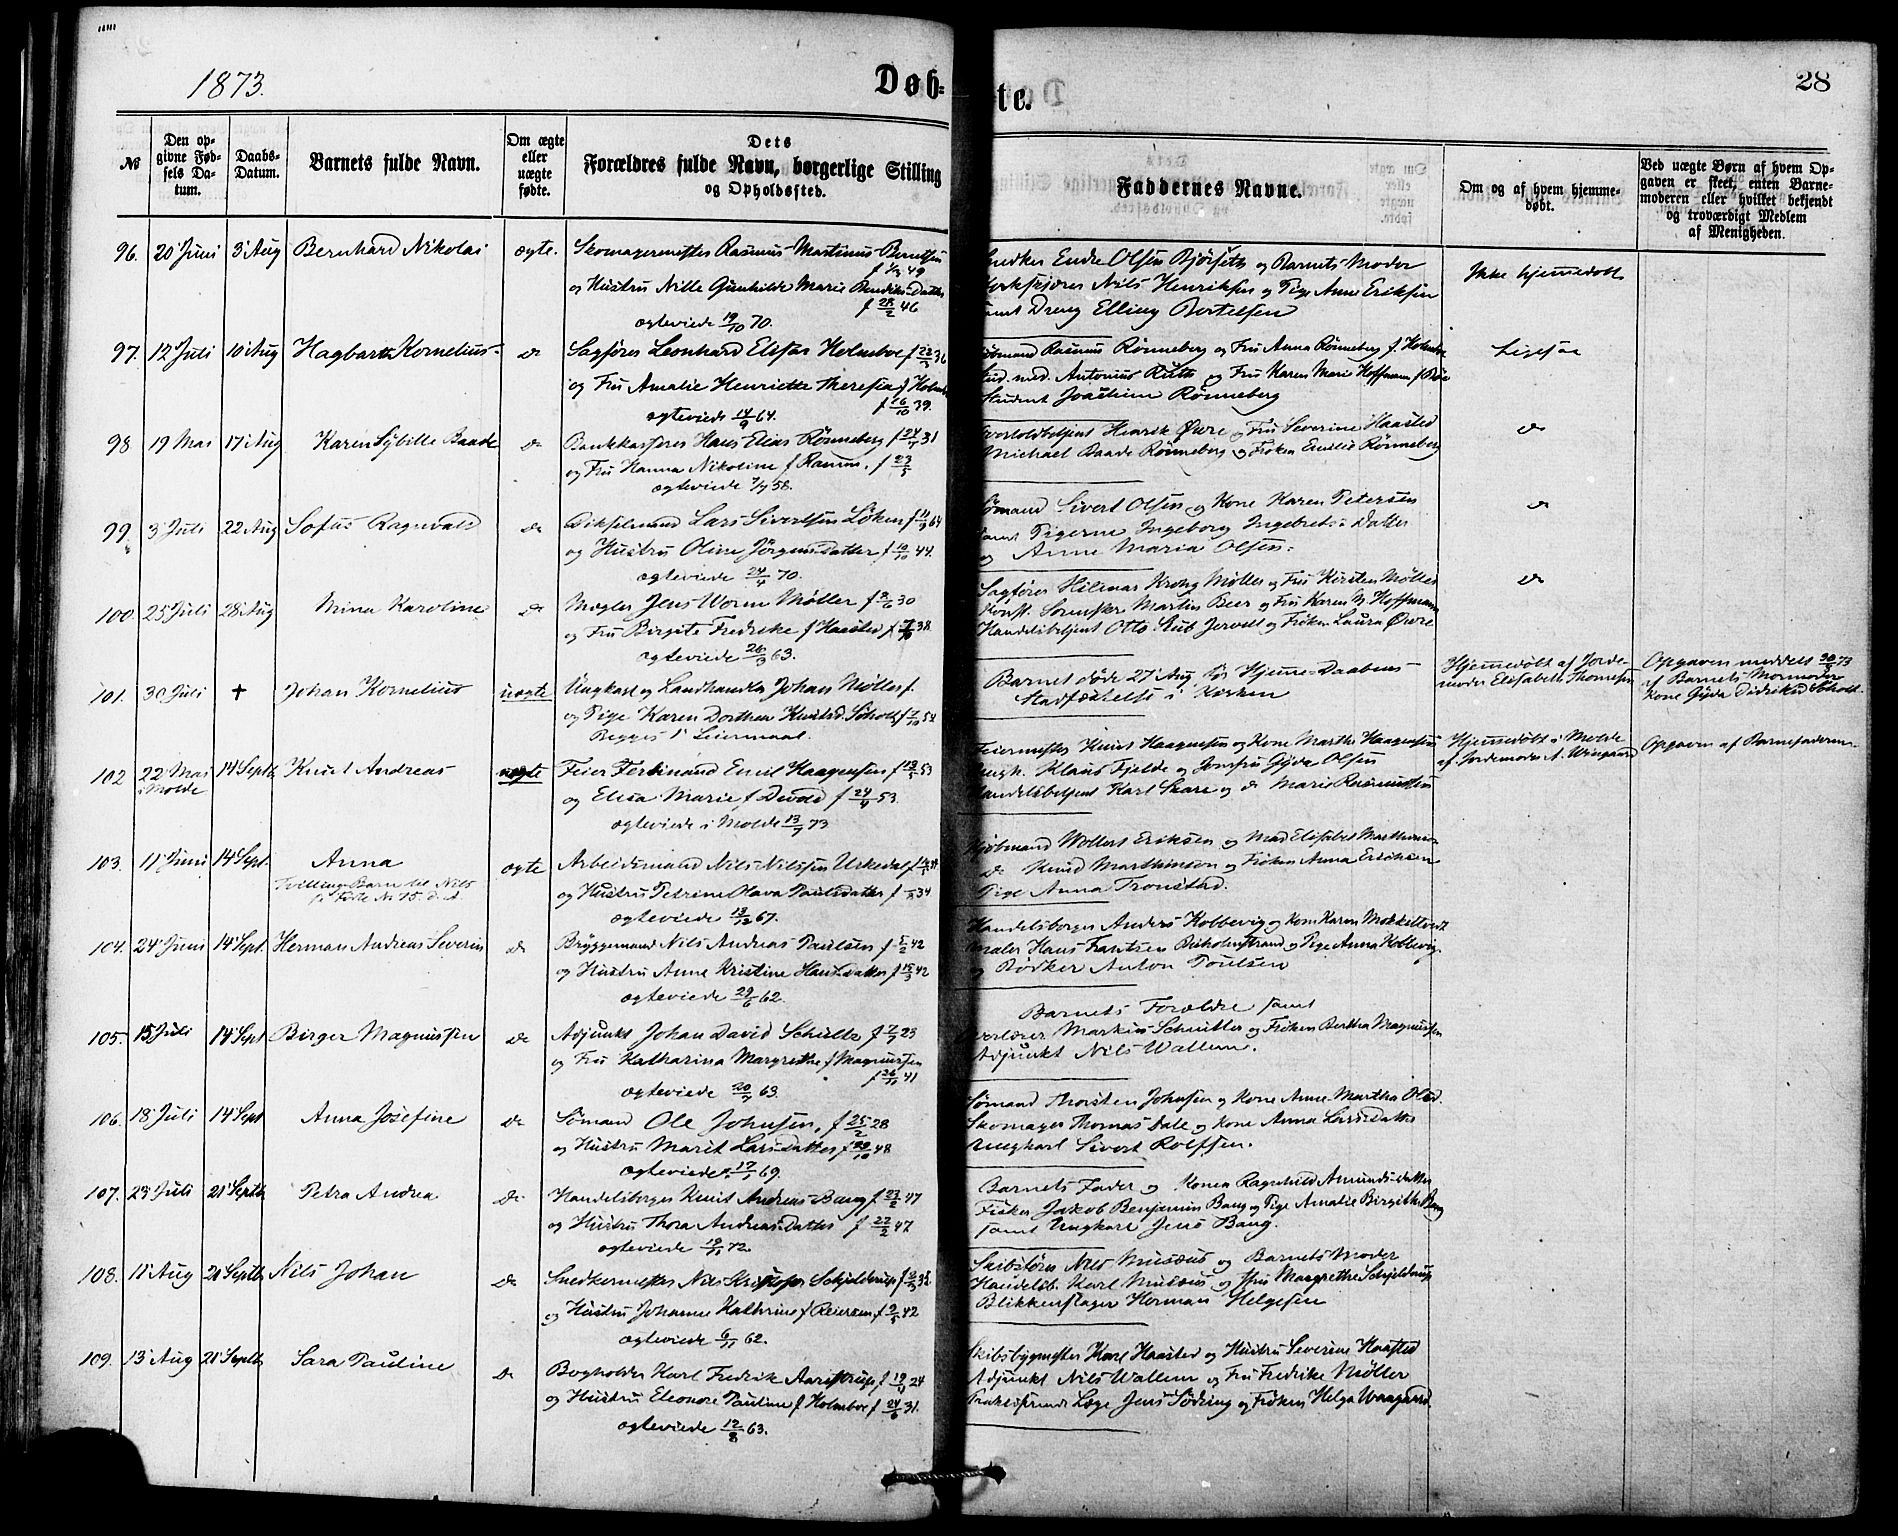 1873.
Døb-
te.
28
№
Den op-
givne Fød-
sels Da-
tum.
Daabs-
Datum.
Barnets fulde Navn.
Om ægte
eller
uægte
fødte.
Dets
Forældres fulde Navn, borgerlige Stilling
og Opholdssted.
Faddernes Navne.
Om og af hvem hjemme-
døbt.
Ved uægte Børn af hvem Op-
gaven er skeet, enten Barne-
moderen eller hvilket bekjendt
og troværdigt Medlem
af Menigheden.
96. 20 Juni 3 Aug Bernhard Nikolai ægte. Skomagermester Rasmus Martinus Berntsen
49
og Hustru Nille Gunhilde Marie Bendiks-Datter
f 28/2 46
ægteviede 19/10 70.
Snedker Endre Olsen Bjørseth og Barnets Moder
Nils Henriksen og Pige Anne Eriksen
samt Dreng Elling Bertelsen
Ikke hjemmedøbt
97. 12 Juli 10 Aug Hagbarth Kornelius do Sagfører Leonhard Elster Holmboe f 36
og Fru Amalie Henriette Theresia f Holmboe
f 16/10 39.
ægteviede 14/9 64.
Kjøbmand Rasmus Rønneberg og Fru Anna Rønneberg f. Holmboe
Stud. med. Antonius Ruth og Fru Karen Marie Hoffmann f
Student Joachim Rønneberg
Ligesaa
98 19 Mai 17 Aug Karen Sybille Baade do Bankkasserer Hans Elias Rønneberg f 31
og Fru Hanna Nikoline f f 23/5
ægteviede 58.
Toldbetjent Henrik Øvre og Fru Severine Haasted
Michael Baade Rønneberg og Frøken Emilie Rønneberg
do
99. 3 Juli 22 Aug Sofus Ragnvald do Lars Sivertsen Løken f
og Hustru Oline Jørgens-Datter f 10/10 44.
ægteviede 24/4 70.
Sømand Sivert Olsen og Kone Karen Petersen
samt Pigerne Ingeborg Ingebrets-Datter
og Anne Maria Olsen.
do
100. 25 Juli 28 Aug Mina Karoline do Mægler Jens Worm Møller f 30
og Fru Birgite Fredrike f Haasted f 38.
ægteviede 26/3 63.
Sagfører Hilmar Krohg Møller og Fru Kirsten Møller
Konst. Sorenskr Martin Beer og Fru Karen M. Hoffmann
Handelsbetjent Otto Rub Jervell og Frøken Laura Øvre
do
101. 30 Juli † Johan Kornelius uægte Ungkarl og Landhandler Johan Møller f.
og Pige Karen Dorthea Knutsd. Søholt
Begges 1' Leiermaal.
Barnet døde 27 Aug før Hjemme-Daabens
Stadfæstelse i Kirken
Hjemmedøbt af Jorde-
moder Elisabeth Thomesen
Opgaven meddelt 73
af Barnets Mormoder
Kone Gjda Didriksd Søholt.
102 22 Mai 14 Septb Knut Andreas uægte Feier Ferdinand Emil Haagensen f 53
i Molde
og Elisa Marie f Devold f 24/4 53.
ægteviede i Molde 13/7 73
Feiermester Knut Haagensen og Kone Marthe Haagensen
Ungk. Klaus Fjelde og Jomfru Gjda Olsen
Handelsbetjent Karl Skare og do Marie Rasmussen
Hjemmedøbt i Molde
af Jordemoder A. Wingaard
Opgaven af Barnefaderen
103. 11 Juni 14 Sept. Anna ægte Arbeidsmand Nils Nilssen Urkedal f
Tvilling-Barn til Nils
og Hustru Petrine Olava Paulsdatter f 34
ægteviede 67.
Kjøbmand Wollert Eriksen og Mad Elisabet Marthinson
do Knud Marthinson og Frøken Anna Erichsen
Pige Anna Tronstad.
104. 24 Juni 14 Sept. Herman Andreas Severin do Bryggemand Nils Andreas Paulsen f 5/2 42
og Hustru Anne Kristine Hansdatter f 42
ægteviede 29/6 62.
Handelsborger Anders Kobbevig og Kone Karen
Maler Hans Frantsen og Pige Anna Kobbevig
og Bødker Anton Poulsen
105. 15 Juli 14 Sept Birger Magnussen do Adjunkt Johan David Schultz f 23
og Fru Katharina Margrethe f Magnussen
f 26/11 41
ægteviede 20/7 63.
Barnets Forældre samt
Overlærer Schnitler og Frøken Bertha Magnussen
Adjunkt Nils Wallem.
106. 18 Juli 14 Sept Anna Josefine do Sømand Ole Johnsen, f 25/2 28
og Hustru Marit Lars-datter f 48
ægteviede 69.
Sømand Thorsten Johnsen og Kone Anne Martha Olsd.
Skomager Thomas Dale og Kone Anna Larsdatter
Ungkarl Sivert Rolfsen.
107. 23 Juli 21 Septb Petra Andrea do Handelsborger Knut Andreas Bang f 23/2 47
og Hustru Thora Andreas-Datter f 22/2 47
ægteviede 19/11 72.
Barnets Fader og Konen Ragnhild Amunds-datter
Fisker Jakob Benjamin Bang og Pige Amalie Birgithe Bang
samt Ungkarl Jens Bang.
108. 11 Aug 21 Septb Nils Johan do Snedkermester Nils Schjelderup f
og Hustru Johanne Kathrine f Reiersen f 42
ægteviede 6/11 62.
Skibsfører Nils Musæus og Barnets Moder
Handelsb. Karl Musæus og Fru Margrethe Schjelderup
Blikkenslager Herman Helgesen
109. 13 Aug 21 Septb Sara Pauline do Bogholder Karl Fredrik Aarestrup f 24
og Hustru Eleonore Pauline f Holmboe f 24/6 31.
ægteviede 12/8 63.
Skibsbygmester Karl Haasted og Hustru Severine Haasted
Adjunkt Nils Wallem og Fru Fredrike Møller
Praktiserende Læge Jens Södring og Frøken Helga Waagaard.